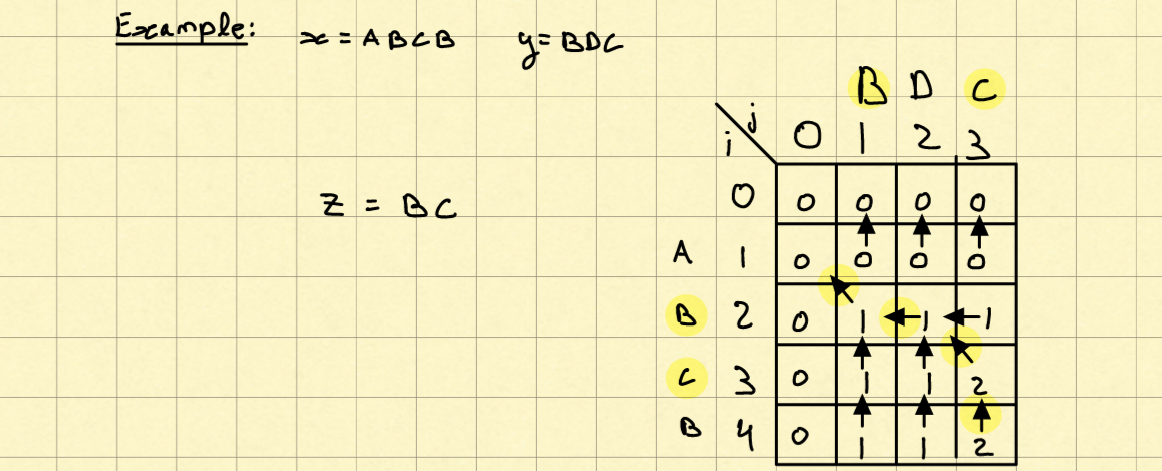 Example: x = ABCB y = BDC
B D C
j
i 0 1 2 3
z = BC
0 0 0 0 0
A 1 0 0 0 0
B 2 0 1 1 1
C 3 0 1 1 2
B 4 0 1 1 2